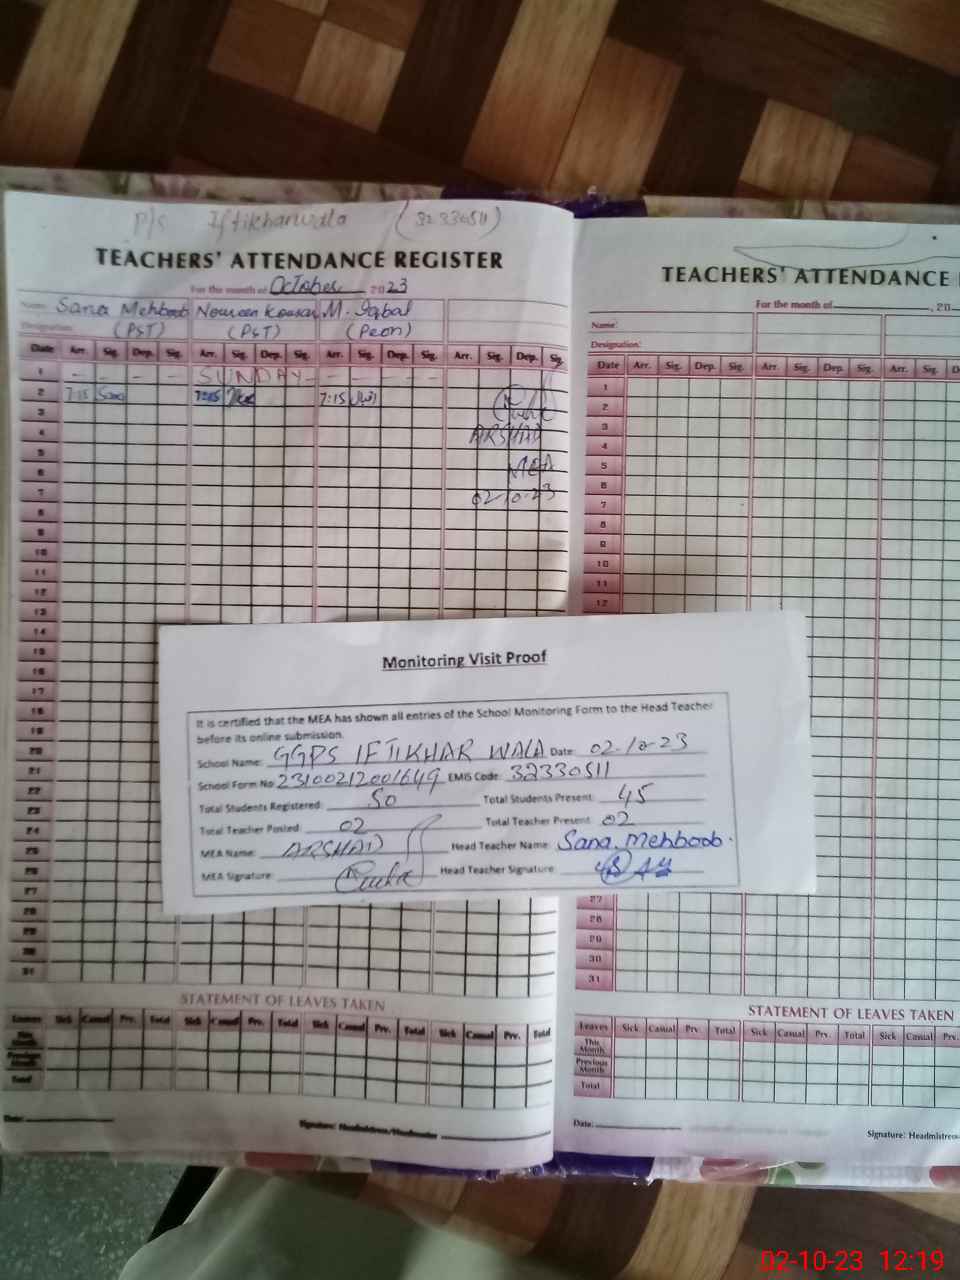 P/S Iftikharwala (32330511)
TEACHERS' ATTENDANCE REGISTER
For the month of October 2023
Name: Sana Mehboob Noureen Kousar M. Iqbal
Designation: (PST) (PST) (Peon)
Date Arr. Sig. Dep. Sig. Arr. Sig. Dep. Sig. Arr. Sig. Dep. Sig. Arr. Sig. Dep. Sig.
1 - - - - SUNDAY - - - - -
2 7:15 Sana 7:15 7:15 اقبال
3
4 ARSHAD
5
6 MEA
7 02-10-23
8
9
10
11
12
13
14
15
16
17
18
19
20
21
22
23
24
25
26
27
28
29
30
31
STATEMENT OF LEAVES TAKEN
Leaves Sick Casual Prv. Total Sick Casual Prv. Total Sick Casual Prv. Total Sick Casual Prv. Total
This Month
Previous Month
Total
Date:
Signature: Headmistress/Headmaster
Monitoring Visit Proof
It is certified that the MEA has shown all entries of the School Monitoring Form to the Head Teacher
before its online submission.
School Name: GGPS IFTIKHAR WALA Date: 02-10-23
School Form No: 23100212001649 EMIS Code: 32330511
Total Students Registered: 50 Total Students Present: 45
Total Teacher Posted: 02 Total Teacher Present: 02
MEA Name: ARSHAD Head Teacher Name: Sana Mehboob.
MEA Signature: Head Teacher Signature:
TEACHERS' ATTENDANCE
For the month of , 20
Name:
Designation:
Date Arr. Sig. Dep. Sig. Arr. Sig. Dep. Sig. Arr. Sig.
1
2
3
4
5
6
7
8
9
10
11
12
27
28
29
30
31
STATEMENT OF LEAVES TAKEN
Leaves Sick Casual Prv. Total Sick Casual Prv. Total Sick Casual Prv.
This Month
Previous Month
Total
Date:
Signature: Headmistress
02-10-23 12:19